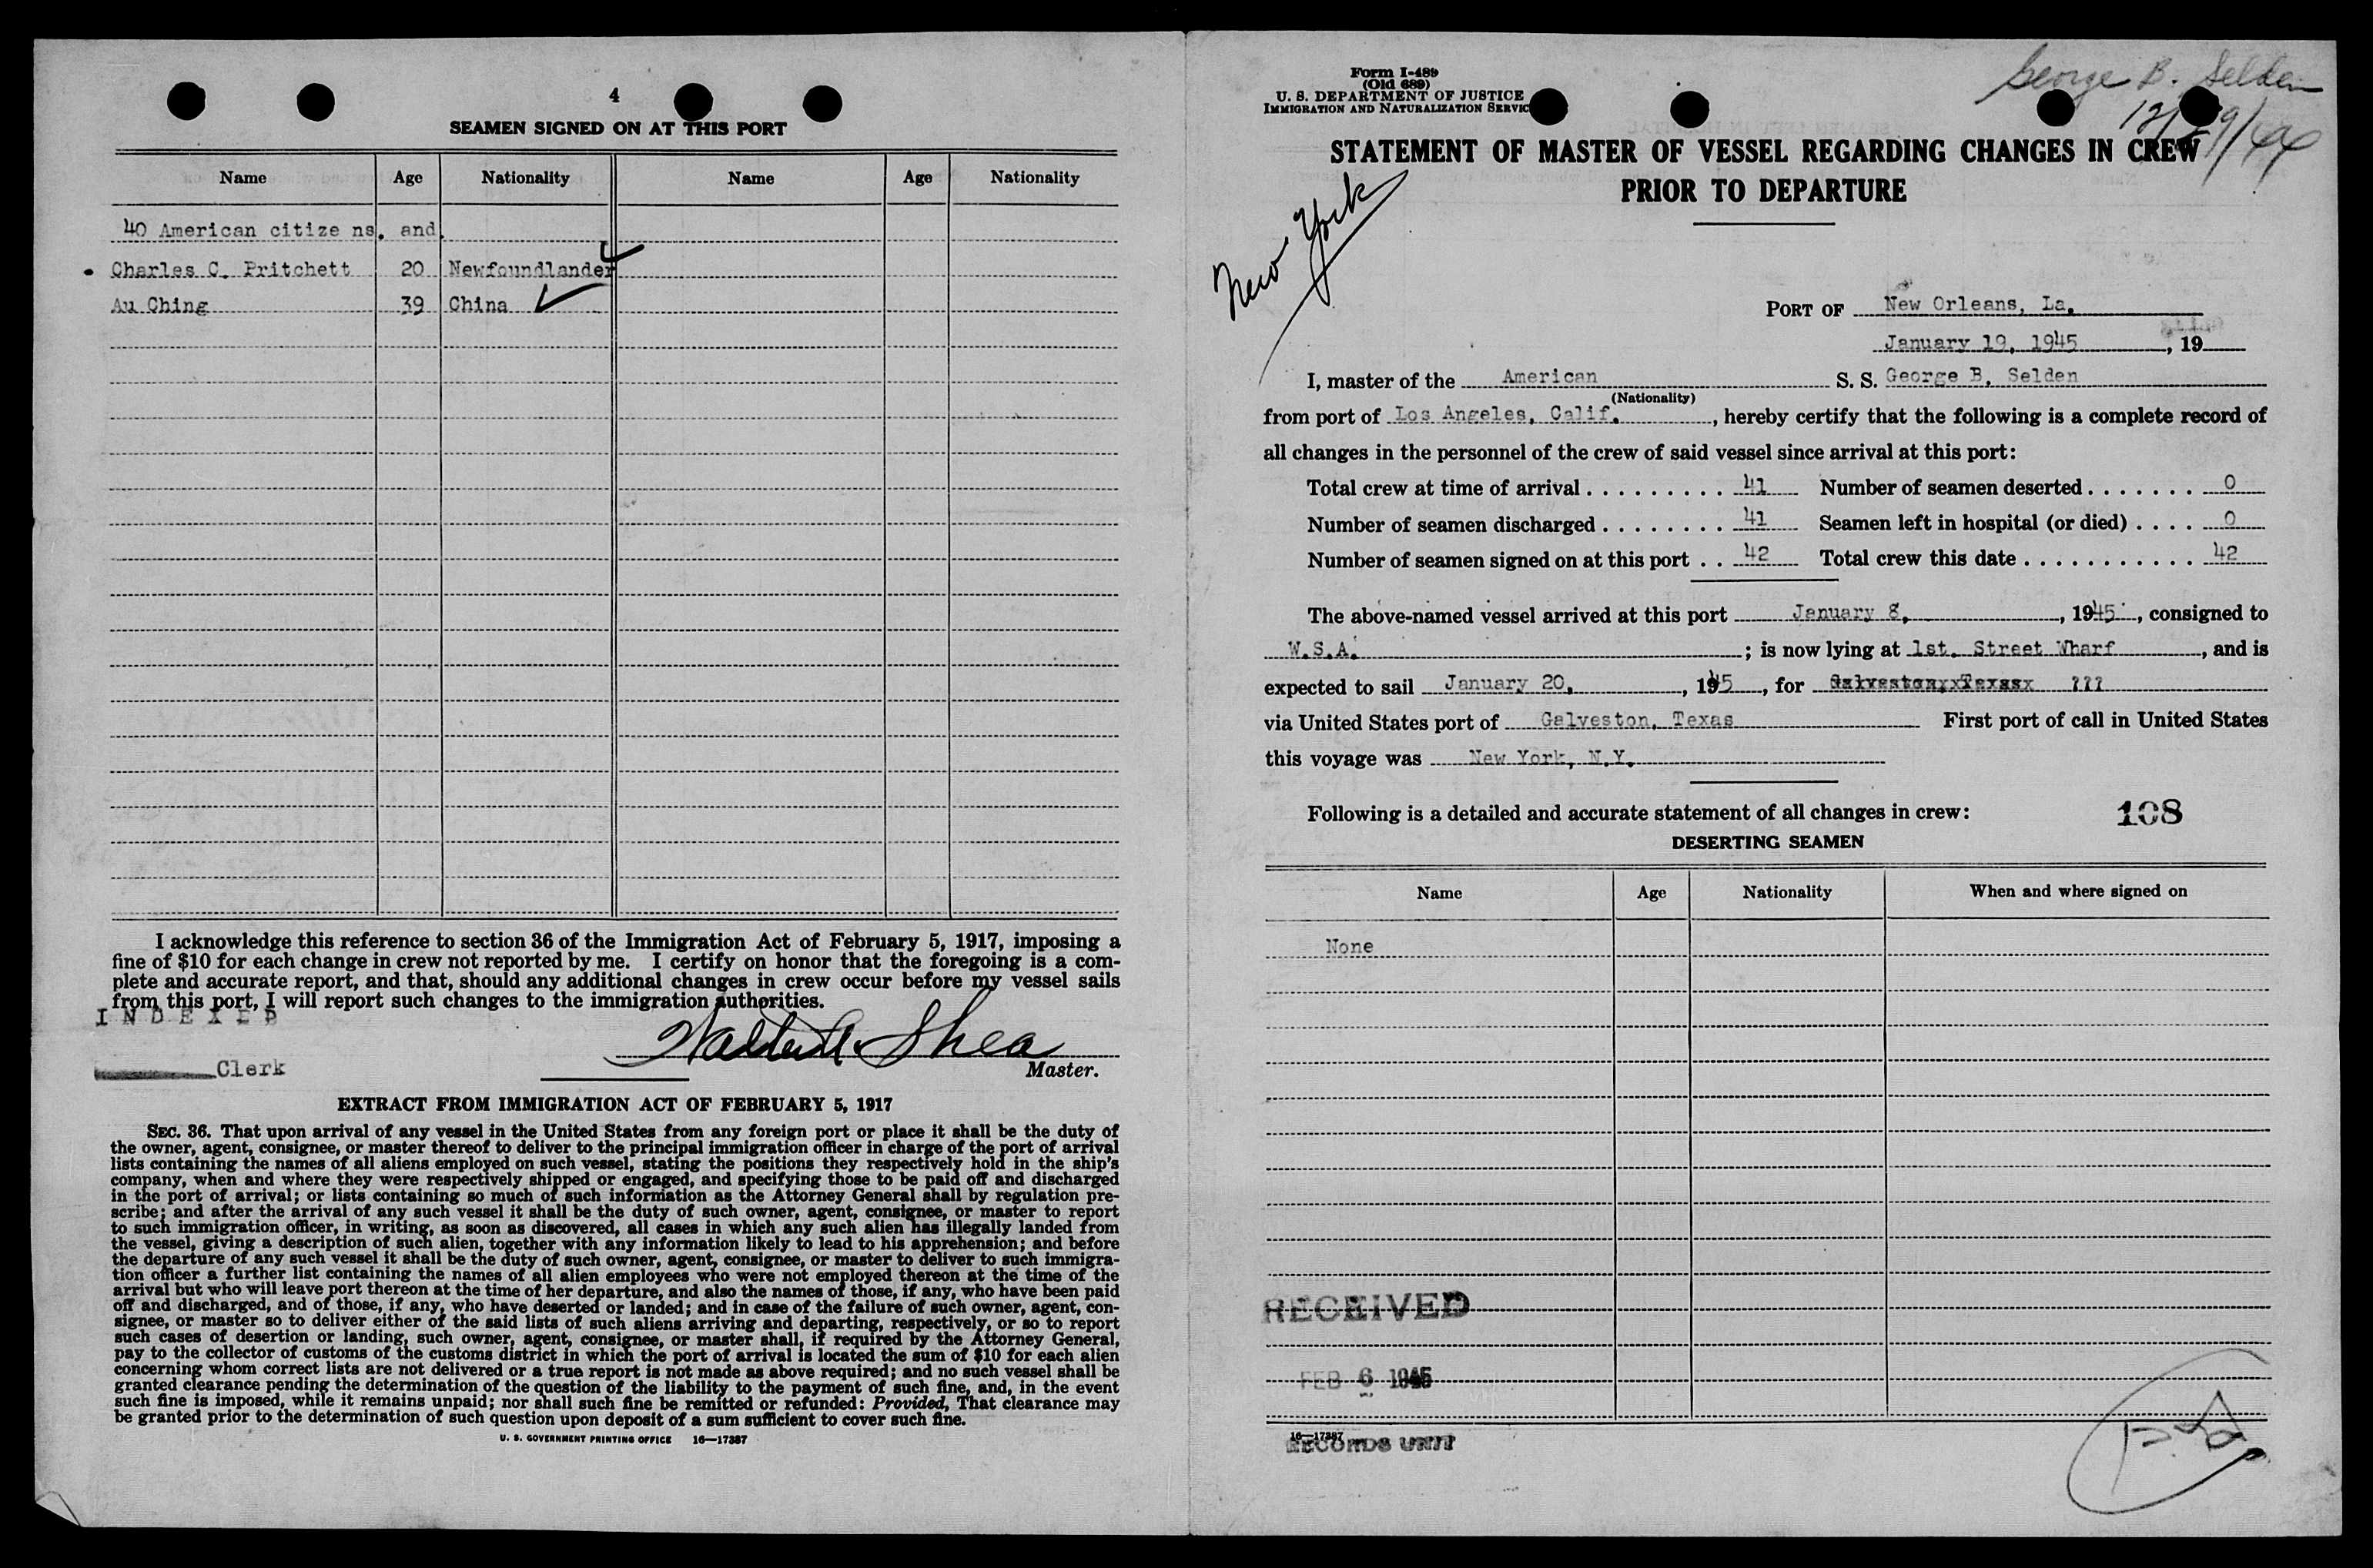 4
SEAMEN SIGNED ON AT THIS PORT
Name Age Nationality Name Age Nationality
40 American citize ns. and.
Charles C. Pritchett 20 Newfoundlander
Au Ching 39 China
I acknowledge this reference to section 36 of the Immigration Act of February 5, 1917, imposing a
fine of $10 for each change in crew not reported by me. I certify on honor that the foregoing is a com-
plete and accurate report, and that, should any additional changes in crew occur before my vessel sails
from this port, I will report such changes to the immigration authorities.
INDEXED
Walter A. Shea
Clerk
Master.
EXTRACT FROM IMMIGRATION ACT OF FEBRUARY 5, 1917
SEC. 36. That upon arrival of any vessel in the United States from any foreign port or place it shall be the duty of
the owner, agent, consignee, or master thereof to deliver to the principal immigration officer in charge of the port of arrival
lists containing the names of all aliens employed on such vessel, stating the positions they respectively hold in the ship's
company, when and where they were respectively shipped or engaged, and specifying those to be paid off and discharged
in the port of arrival; or lists containing so much of such information as the Attorney General shall by regulation pre-
scribe; and after the arrival of any such vessel it shall be the duty of such owner, agent, consignee, or master to report
to such immigration officer, in writing, as soon as discovered, all cases in which any such alien has illegally landed from
the vessel, giving a description of such alien, together with any information likely to lead to his apprehension; and before
the departure of any such vessel it shall be the duty of such owner, agent, consignee, or master to deliver to such immigra-
tion officer a further list containing the names of all alien employees who were not employed thereon at the time of the
arrival but who will leave port thereon at the time of her departure, and also the names of those, if any, who have been paid
off and discharged, and of those, if any, who have deserted or landed; and in case of the failure of such owner, agent, con-
signee, or master so to deliver either of the said lists of such aliens arriving and departing, respectively, or so to report
such cases of desertion or landing, such owner, agent, consignee, or master shall, if required by the Attorney General,
pay to the collector of customs of the customs district in which the port of arrival is located the sum of $10 for each alien
concerning whom correct lists are not delivered or a true report is not made as above required; and no such vessel shall be
granted clearance pending the determination of the question of the liability to the payment of such fine, and, in the event
such fine is imposed, while it remains unpaid; nor shall such fine be remitted or refunded: Provided, That clearance may
be granted prior to the determination of such question upon deposit of a sum sufficient to cover such fine.
U. S. GOVERNMENT PRINTING OFFICE 16—17387
Form I-489
(Old 689)
U. S. DEPARTMENT OF JUSTICE
IMMIGRATION AND NATURALIZATION SERVIC
George B. Selden
12/29/44
STATEMENT OF MASTER OF VESSEL REGARDING CHANGES IN CREW
PRIOR TO DEPARTURE
New York
PORT OF New Orleans, La.
January 19, 1945, 19
I, master of the American S. S. George B. Selden
(Nationality)
from port of Los Angeles, Calif., hereby certify that the following is a complete record of
all changes in the personnel of the crew of said vessel since arrival at this port:
Total crew at time of arrival . . . . . . . . . 41 Number of seamen deserted . . . . . . . 0
Number of seamen discharged . . . . . . . . 41 Seamen left in hospital (or died) . . . . 0
Number of seamen signed on at this port . . 42 Total crew this date . . . . . . . . . . . 42
The above-named vessel arrived at this port January 8, , 1945, consigned to
W.S.A. ; is now lying at 1st. Street Wharf, and is
expected to sail January 20, , 1945, for Galveston, Texas ???
via United States port of Galveston, Texas First port of call in United States
this voyage was New York, N.Y.
Following is a detailed and accurate statement of all changes in crew: 108
DESERTING SEAMEN
Name Age Nationality When and where signed on
None
RECEIVED
FEB 6 1945
16—17387
RECORDS UNIT